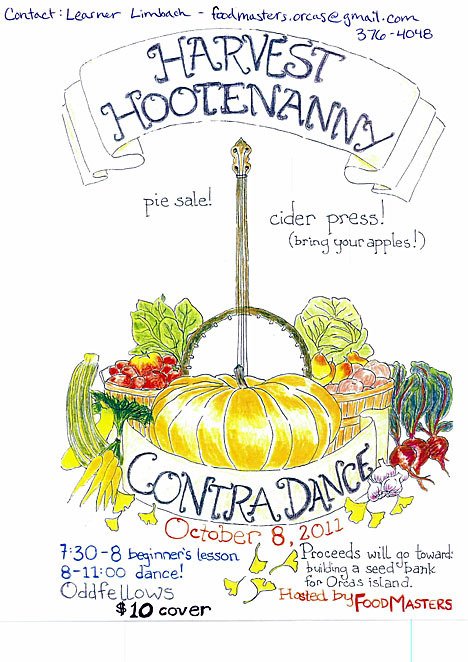 Contact: Learner Limbach - foodmasters.orcas@gmail.com
376-4048
HARVEST
HOOTENANNY
pie sale!
cider press!
(bring your apples!)
CONTRA DANCE
October 8, 2011
7:30-8 beginner's lesson
8-11:00 dance!
Oddfellows
$10 cover
Proceeds will go toward
building a seed bank
for Orcas island.
Hosted by FOODMASTERS